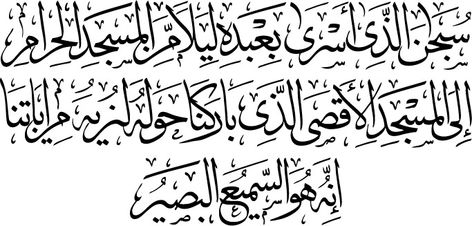 سبحن الذى أسرى بعبده ليلا من المسجد الحرام
إلى المسجد الأقصى الذى باركنا حوله لنريه من اياتنا
إنه هو السميع البصير